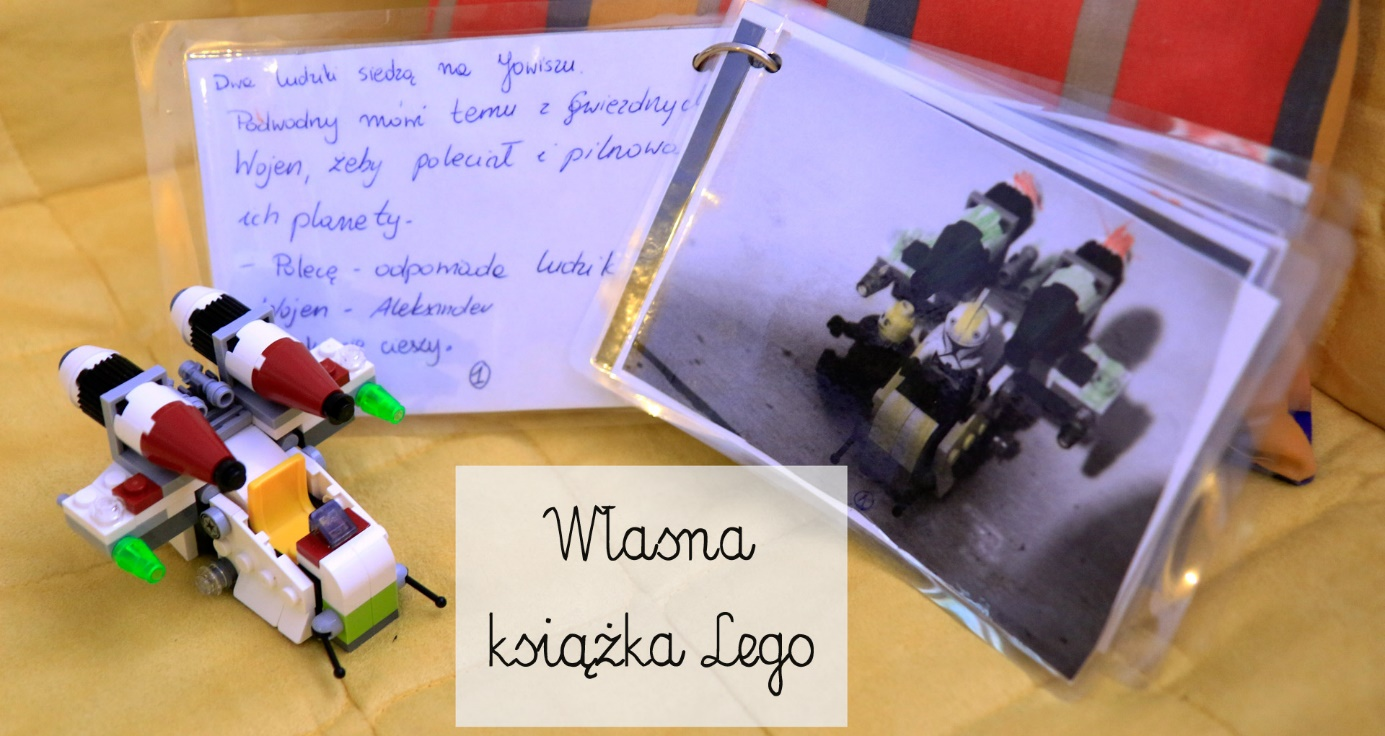 Dwa ludziki siedzą na Jowiszu.
Podwodny mówi temu z Gwiezdnyc
Wojen, żeby poleciał i pilnowa
ich planety.
- Polecę - odpowiada ludzik
Wojen - Aleksander
cieszy.
1
1
Własna
książka Lego